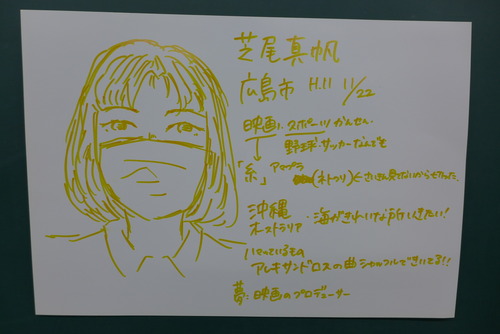 芝尾真帆
広島市 H.11 11/22
映画、スポーツかんせん
野球・サッカーなんでも
「糸」 アマプラ
(ネトフリ)
沖縄
オーストラリア ・海がきれいな所
ハマっているもの
アレキサンドロスの曲シャッフルできいてる!!
夢:映画のプロデューサー